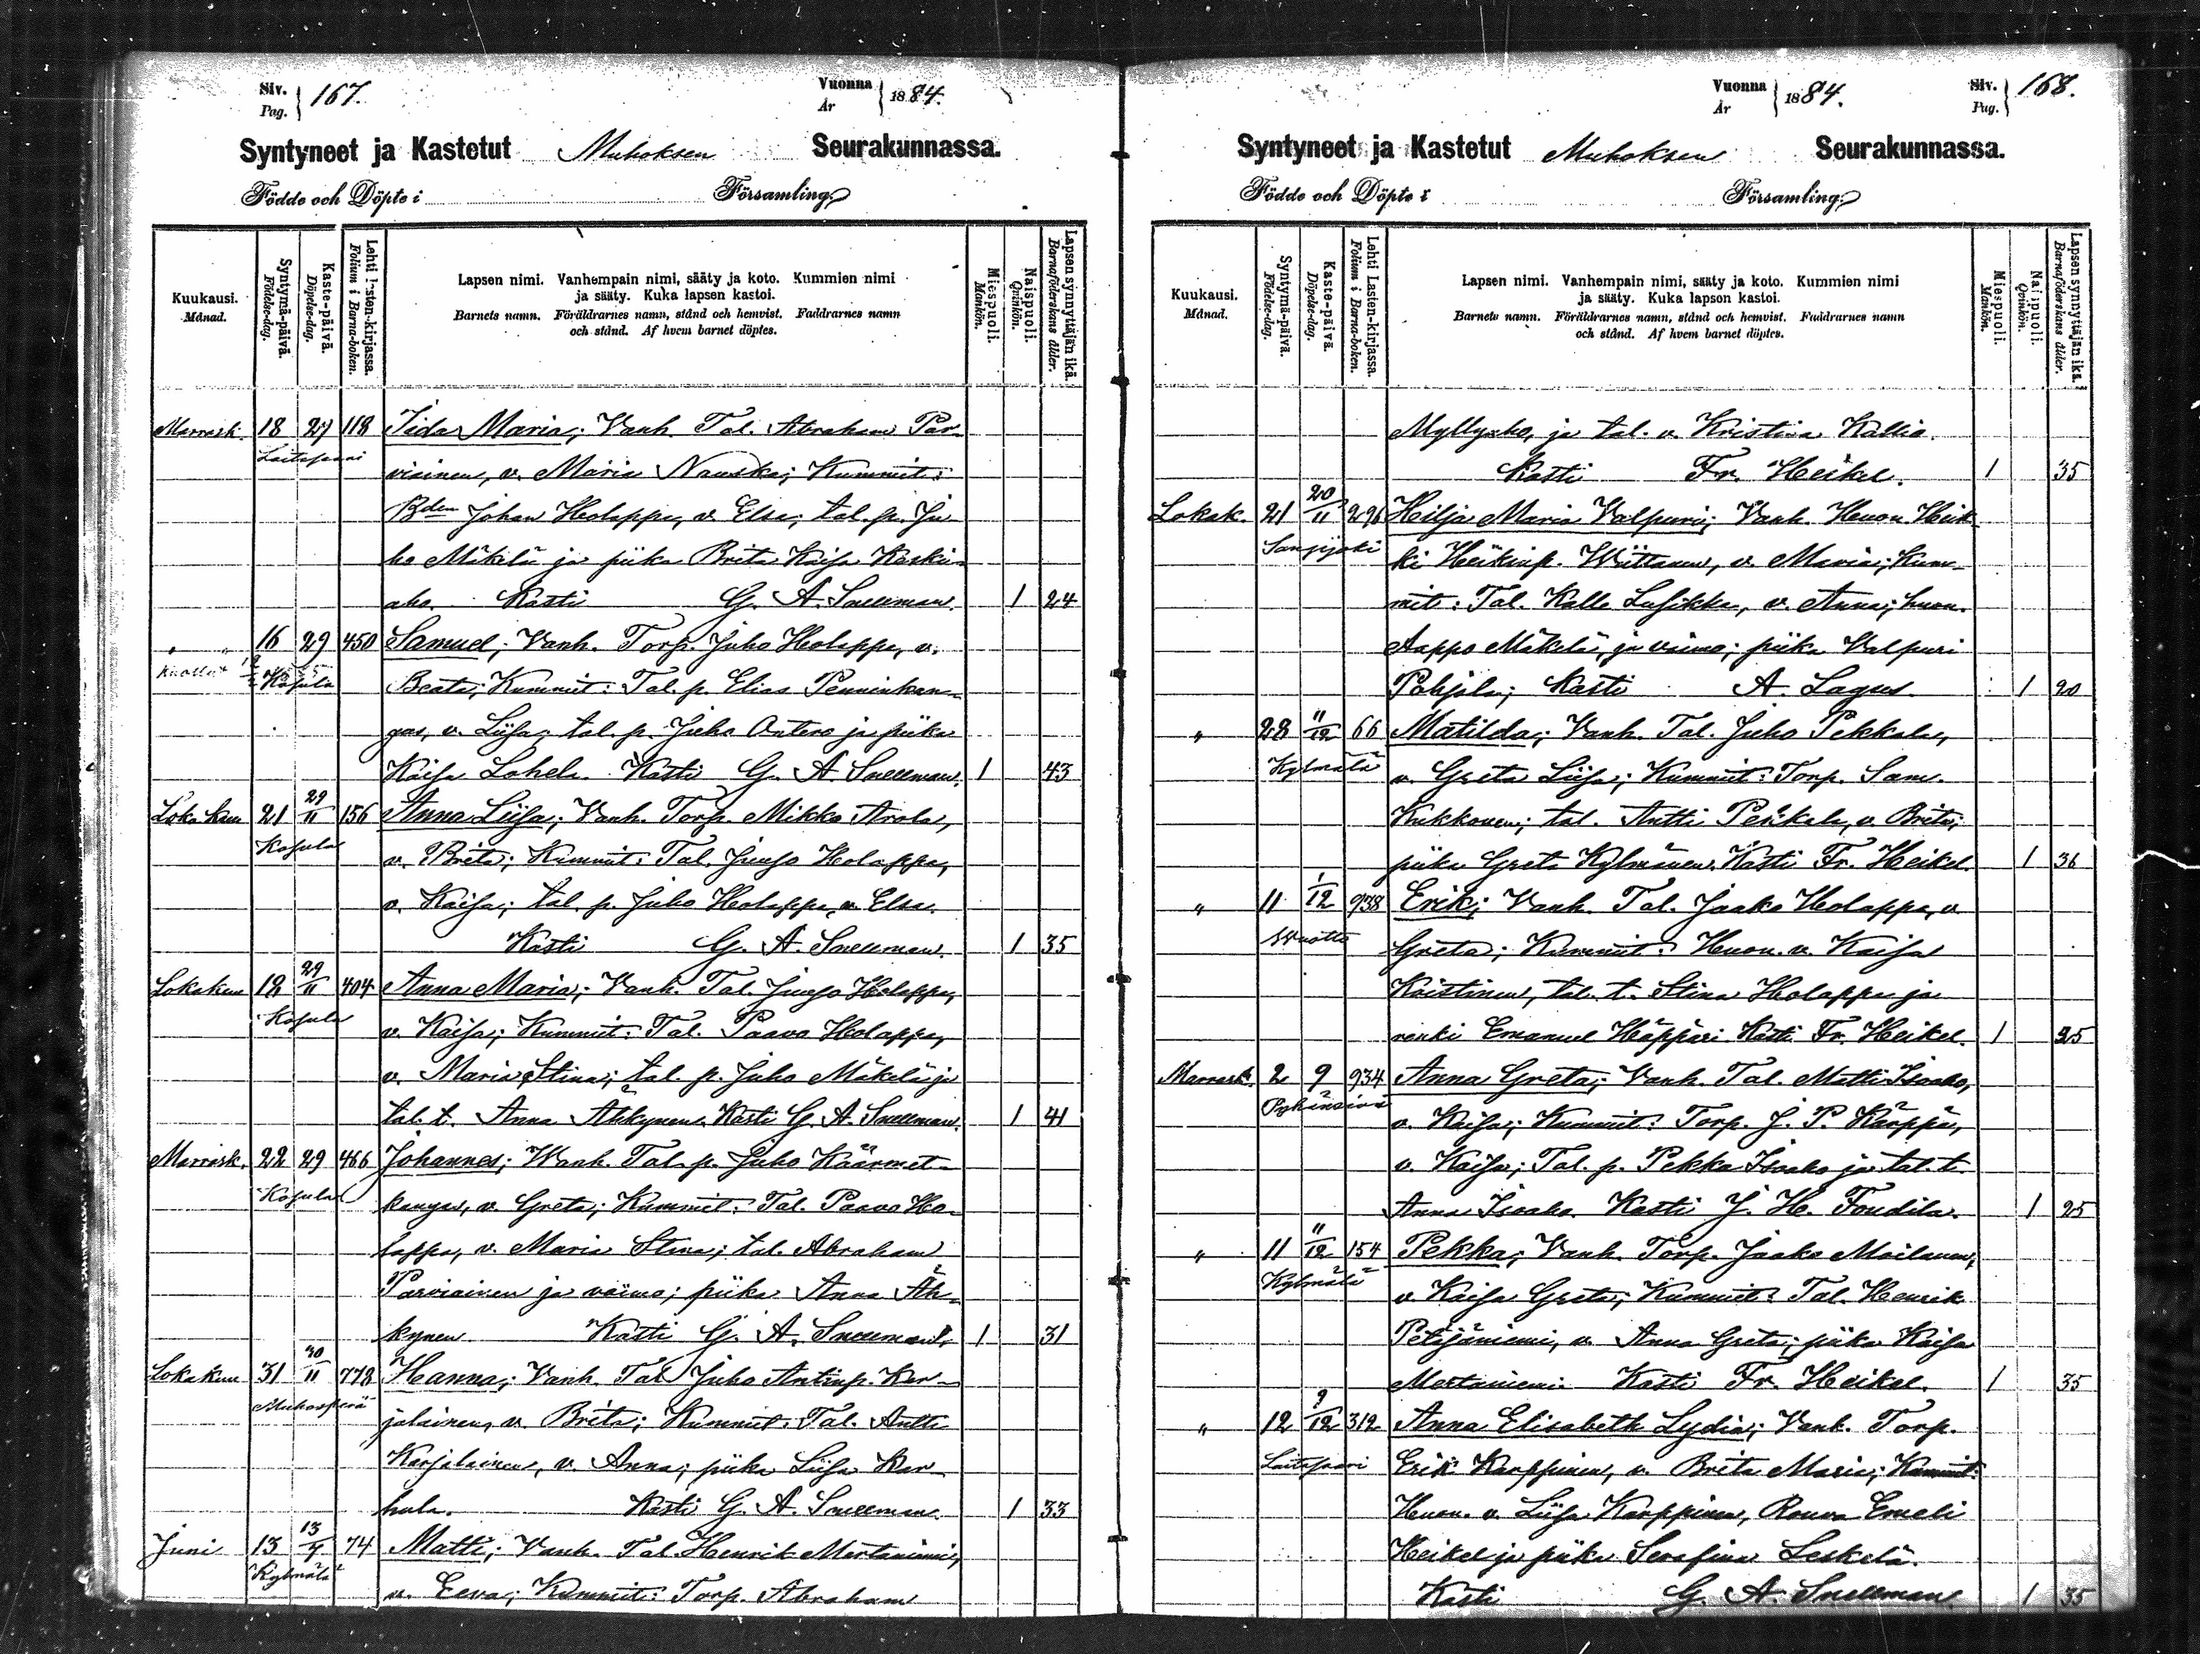 Siv. Pag. } 167.
Vuonna År } 1884.
Syntyneet ja Kastetut Muhoksen Seurakunnassa.
Födde och Döpte i Församling.
Kuukausi. Månad.
Syntymä-päivä. Födelse-dag.
Kaste-päivä. Döpelse-dag.
Lehti Lasten-kirjassa. Folium i Barna-boken.
Lapsen nimi. Vanhempain nimi, sääty ja koto. Kummien nimi
ja sääty. Kuka lapsen kastoi.
Barnets namn. Föräldrarnes namn, stånd och hemvist. Faddrarnes namn
och stånd. Af hvem barnet döptes.
Miespuoli. Mankön.
Naispuoli. Qvinkön.
Lapsen synnyttäjän ikä. Barnaföderskans ålder.
Marrask. 18 27 118 Iida Maria; Vanh. Tal. Abraham Par-
Laitasaari viainen, v. Maria Nauska; Kummit:
Bden Johan Holappa, v. Elsa; tal. p. Ju-
ho Mäkelä ja piika Brita Kaisa Keski-
aho. Kasti G. A. Snellman. 1 24
" " 16 29 450 Samuel; Vanh. Torp. Juho Holappa, v.
Kuollut Kosula Beata; Kummit: Tal. p. Elias Penninkan-
gas, v. Liisa; tal. p. Juho Antero ja piika
Kaisa Lohela. Kasti G. A. Snellman. 1 43
Lokakuu 21 29/11 156 Anna Liisa; Vanh. Torp. Mikko Arola,
Kosula v. Brita; Kummit: Tal. Juuso Holappa,
v. Kaisa; tal. p. Juho Holappa, v. Elsa.
Kasti G. A. Snellman. 1 35
Lokakuu 18 29/11 404 Anna Maria; Vanh. Tal. Juuso Holappa,
Kosula v. Kaisa; Kummit: Tal. Paavo Holappa,
v. Maria Stina; tal. p. Juho Mäkelä ja
tal. t. Anna Ahkynen. Kasti G. A. Snellman. 1 41
Marrask. 22 29 466 Johannes; Vanh. Tal. p. Juho Käärmet-
Kosula kangas, v. Greta; Kummit: Tal. Paavo Ho-
lappa, v. Maria Stina; tal. Abraham
Parviainen ja vaimo; piika Anna Äh-
kynen Kasti G. A. Snellman. 1 31
Lokakuu 31 30/11 778 Hanna; Vanh. Tal. Juho Antinp. Kar-
Muhosperä jalainen, v. Brita; Kummit: Tal. Antti
Karjalainen, v. Anna; piika Liisa Kar-
hula. Kasti G. A. Snellman. 1 33
Juni 13 13/9 74 Matti; Vanh. Tal. Henrik Mertaniemi,
Kylmälä v. Eeva; Kummit: Torp. Abraham
Vuonna År } 1884.
Siv. Pag. } 168.
Syntyneet ja Kastetut Muhoksen Seurakunnassa.
Födde och Döpte i Församling.
Kuukausi. Månad.
Syntymä-päivä. Födelse-dag.
Kaste-päivä. Döpelse-dag.
Lehti Lasten-kirjassa. Folium i Barna-boken.
Lapsen nimi. Vanhempain nimi, sääty ja koto. Kummien nimi
ja sääty. Kuka lapsen kastoi.
Barnets namn. Föräldrarnes namn, stånd och hemvist. Faddrarnes namn
och stånd. Af hvem barnet döptes.
Miespuoli. Mankön.
Naispuoli. Qvinkön.
Lapsen synnyttäjän ikä. Barnaföderskans ålder.
Myllyaho, ja tal. v. Kristina Kallio.
Kasti Fr. Heikel. 1 35
Lokak. 21 20/11 296 Hilja Maria Valpuri; Vanh. Huon. Heik-
Sangijoki ki Heikinp. Wiittanen, v. Maria; Kum-
mit: Tal. Kalle Lusikka, v. Anna; huon.
Aappo Mäkelä, ja vaimo; piika Valpuri
Pohjola; Kasti A. Lagus. 1 20
" 28 11/12 66 Matilda; Vanh. Tal. Juho Pekkala,
Kylmälä v. Greta Liisa; Kummit: Torp. Sam.
Kukkonen; tal. Antti Pekkala, v. Brita;
piika Greta Kylmänen. Kasti Fr. Heikel. 1 36
" 11 1/12 938 Erik; Vanh. Tal. Jaako Holappa, v.
Greta; Kummit: Huon. v. Kaisa
Kaistinen, tal. t. Stina Holappa ja
renki Emanuel Häppäri. Kasti Fr. Heikel. 1 25
Marrask. 2 9 934 Anna Greta; Vanh. Tal. Matti Isoaho,
v. Kaisa; Kummit: Torp. J. P. Kärppä,
v. Kaisa; Tal. p. Pekka Isoaho ja tal. t.
Anna Isoaho. Kasti J. H. Fondila. 1 25
" 11 11/12 154 Pekka; Vanh. Torp. Jaako Moilanen,
Kylmälä v. Kaisa Greta; Kummit: Tal. Henrik
Petäjäniemi, v. Anna Greta; piika Kaisa
Mertaniemi. Kasti Fr. Heikel. 1 35
" 12 9/12 312 Anna Elisabeth Lydia; Vanh. Torp.
Laitasaari Erik Karppinen, v. Brita Maria; Kummit:
Huon. v. Liisa Karppinen, Rouva Emeli
Heikel ja piika Serafina Leskelä.
Kasti G. A. Snellman 1 35